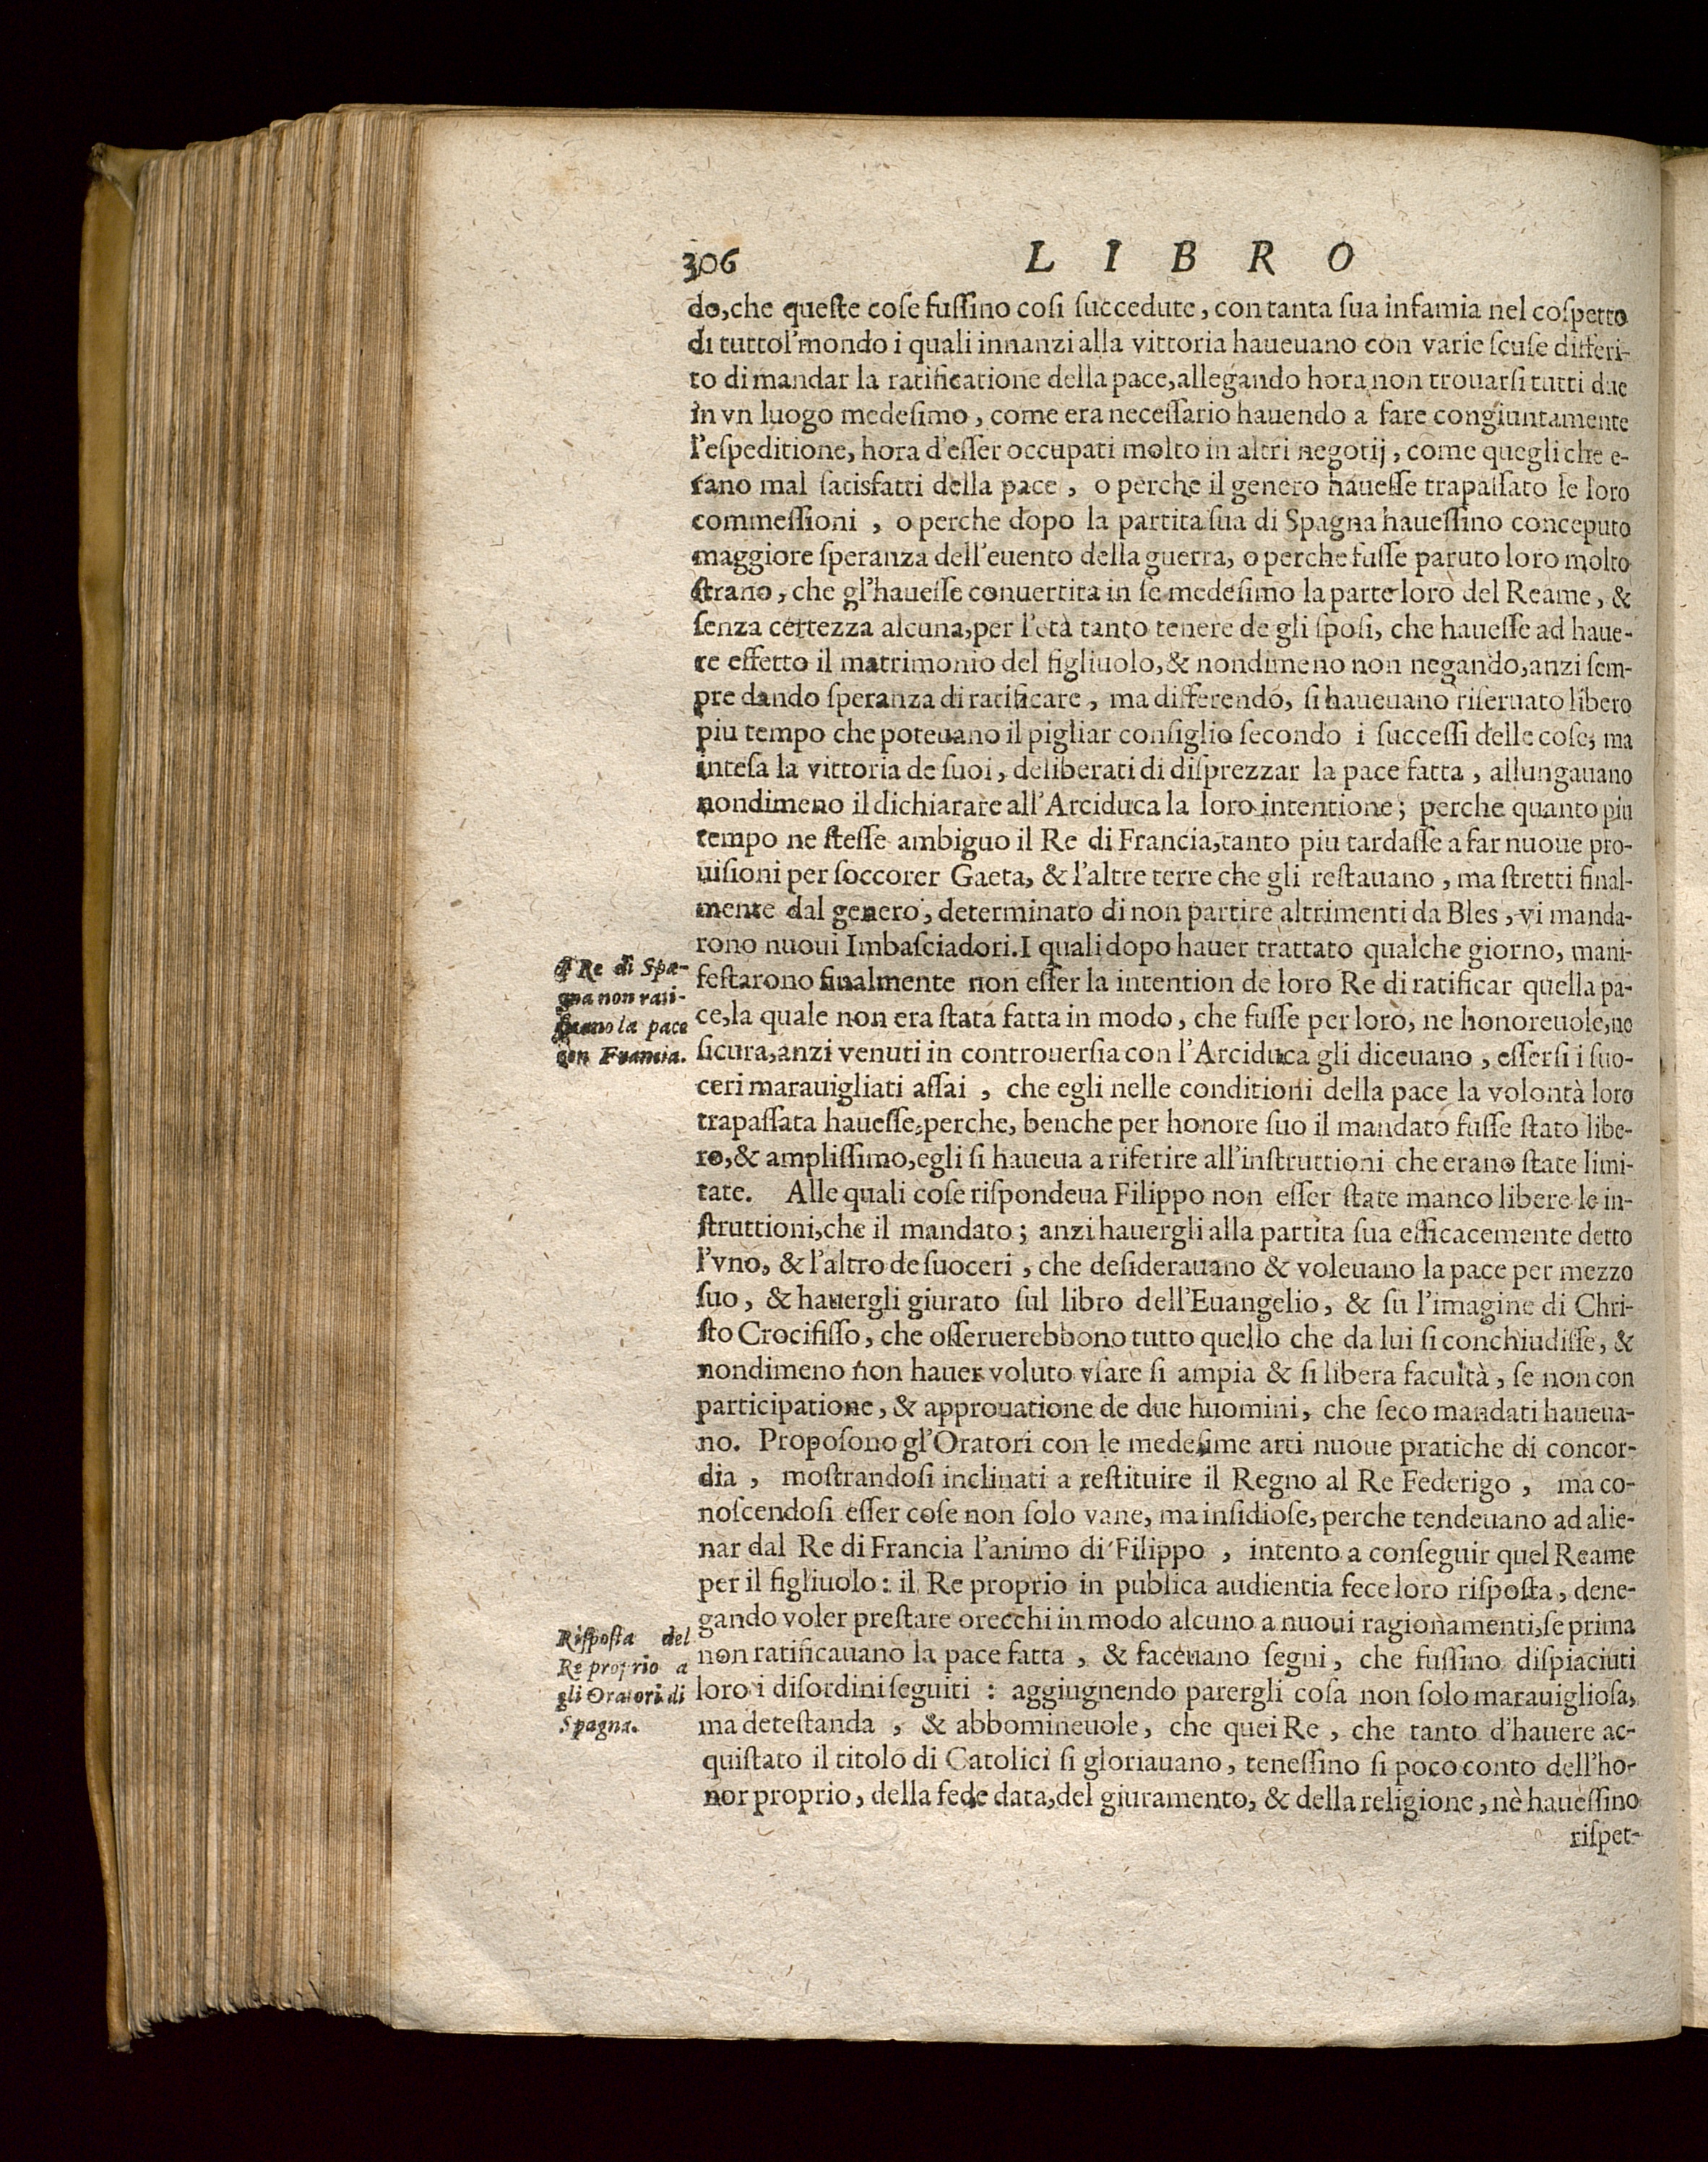 306 LIBRO
do, che queſte coſe fuſſino coſi ſuccedute, con tanta ſua infamia nel coſpetto
di tuttol'mondo i quali innanzi alla vittoria haueuano con varie ſcuſe differi-
to di mandar la ratificatione della pace, allegando hora non trouarſi tutti due
in vn luogo medeſimo, come era neceſſario hauendo a fare congiuntamente
l'eſpeditione, hora d'eſſer occupati molto in altri negotij, come quegli che e-
rano mal ſatisfatti della pace, o perche il genero haueſſe trapaſſato le loro
commeſſioni, o perche dopo la partita ſua di Spagna haueſſino conceputo
maggiore ſperanza dell'euento della guerra, o perche fuſſe paruto loro molto
ſtrano, che gl'haueſſe conuertita in ſe medeſimo la parte loro del Reame, &
ſenza certezza alcuna, per l'età tanto tenere de gli ſpoſi, che haueſſe ad haue-
re effetto il matrimonio del figliuolo, & nondimeno non negando, anzi ſem-
pre dando ſperanza di ratificare, ma differendo, ſi haueuano riſeruato libero
piu tempo che poteuano il pigliar conſiglio ſecondo i ſucceſſi delle coſe, ma
inteſa la vittoria de ſuoi, deliberati di diſprezzar la pace fatta, allungauano
nondimeno il dichiarare all'Arciduca la loro intentione; perche quanto piu
tempo ne ſteſſe ambiguo il Re di Francia, tanto piu tardaſſe a far nuoue pro-
uiſioni per ſoccorer Gaeta, & l'altre terre che gli reſtauano, ma ſtretti final-
mente dal genero, determinato di non partire altrimenti da Bles, vi manda-
rono nuoui Imbaſciadori. I quali dopo hauer trattato qualche giorno, mani-
feſtarono finalmente non eſſer la intention de loro Re di ratificar quella pa-
ce, la quale non era ſtata fatta in modo, che fuſſe per loro, ne honoreuole, ne
ſicura, anzi venuti in controuerſia con l'Arciduca gli diceuano, eſſerſi i ſuo-
ceri marauigliati aſſai, che egli nelle conditioni della pace la volontà loro
trapaſſata haueſſe, perche, benche per honore ſuo il mandato fuſſe ſtato libe-
ro, & ampliſſimo, egli ſi haueua a riferire all'inſtruttioni che erano ſtate limi-
tate. Alle quali coſe riſpondeua Filippo non eſſer ſtate manco libere le in-
ſtruttioni, che il mandato; anzi hauergli alla partita ſua efficacemente detto
l'vno, & l'altro de ſuoceri, che deſiderauano & voleuano la pace per mezzo
ſuo, & hauergli giurato ſul libro dell'Euangelio, & ſu l'imagine di Chri-
ſto Crocifiſſo, che oſſeruerebbono tutto quello che da lui ſi conchiudiſſe, &
nondimeno non hauer voluto vſare ſi ampia & ſi libera facultà, ſe non con
participatione, & approuatione de due huomini, che ſeco mandati haueua-
no. Propoſono gl'Oratori con le medeſime arti nuoue pratiche di concor-
dia, moſtrandoſi inclinati a reſtituire il Regno al Re Federigo, ma co-
noſcendoſi eſſer coſe non ſolo vane, ma inſidioſe, perche tendeuano ad alie-
nar dal Re di Francia l'animo di Filippo, intento a conſeguir quel Reame
per il figliuolo: il Re proprio in publica audientia fece loro riſpoſta, dene-
gando voler preſtare orecchi in modo alcuno a nuoui ragionamenti, ſe prima
non ratificauano la pace fatta, & faceuano ſegni, che fuſſino diſpiaciuti
loro i diſordini ſeguiti: aggiugnendo parergli coſa non ſolo marauiglioſa,
ma deteſtanda, & abbomineuole, che quei Re, che tanto d'hauere ac-
quiſtato il titolo di Catolici ſi gloriauano, teneſſino ſi poco conto dell'ho-
nor proprio, della fede data, del giuramento, & della religione, nè haueſſino
riſpet-
I Re di Spa-
gna non rati-
ficano la pace
con Francia.
Riſpoſta del
Re proprio a
gli Oratori di
Spagna.